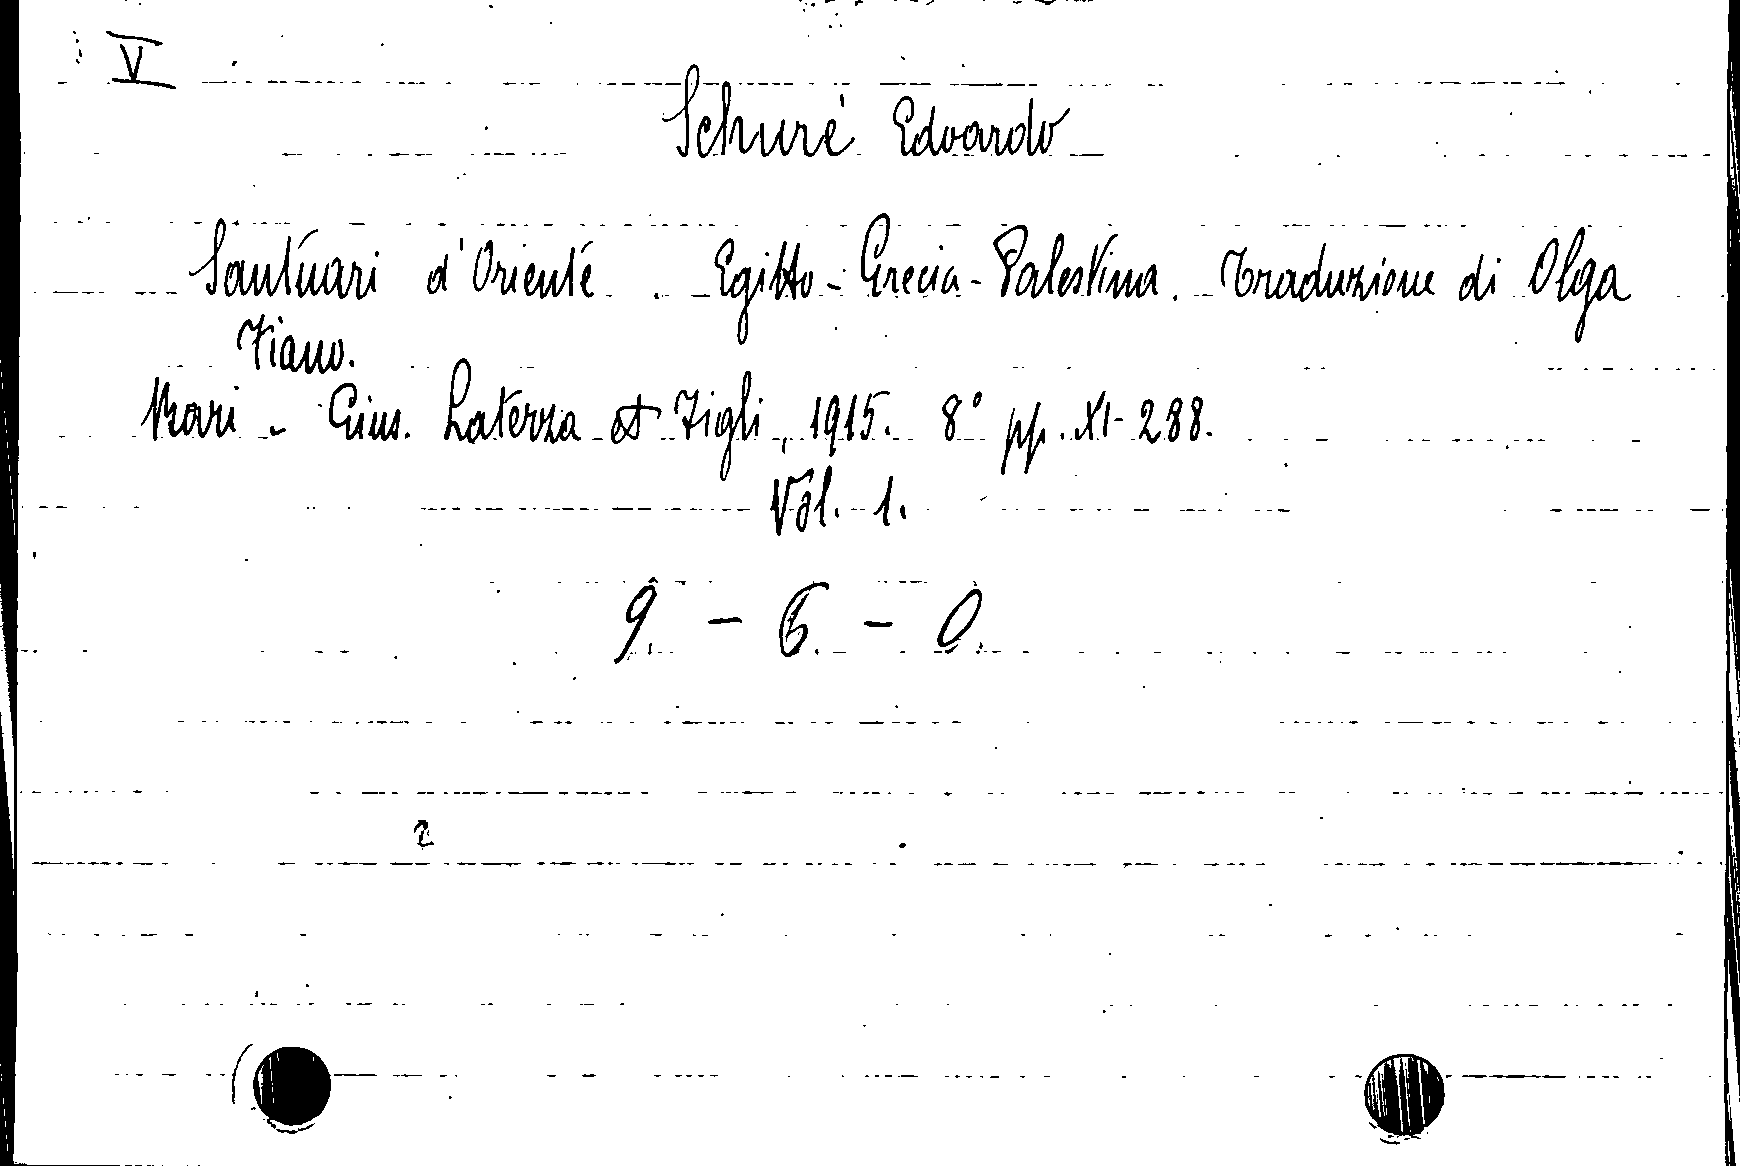 V
Schuré Edoardo
Santuari d'Oriente. Egitto - Grecia - Palestina. Traduzione di Olga
Fiano.
Bari - Gius. Laterza & Figli, 1915. 8° pp. XI-288.
Vol. 1.
9. - 6. - 0.
2